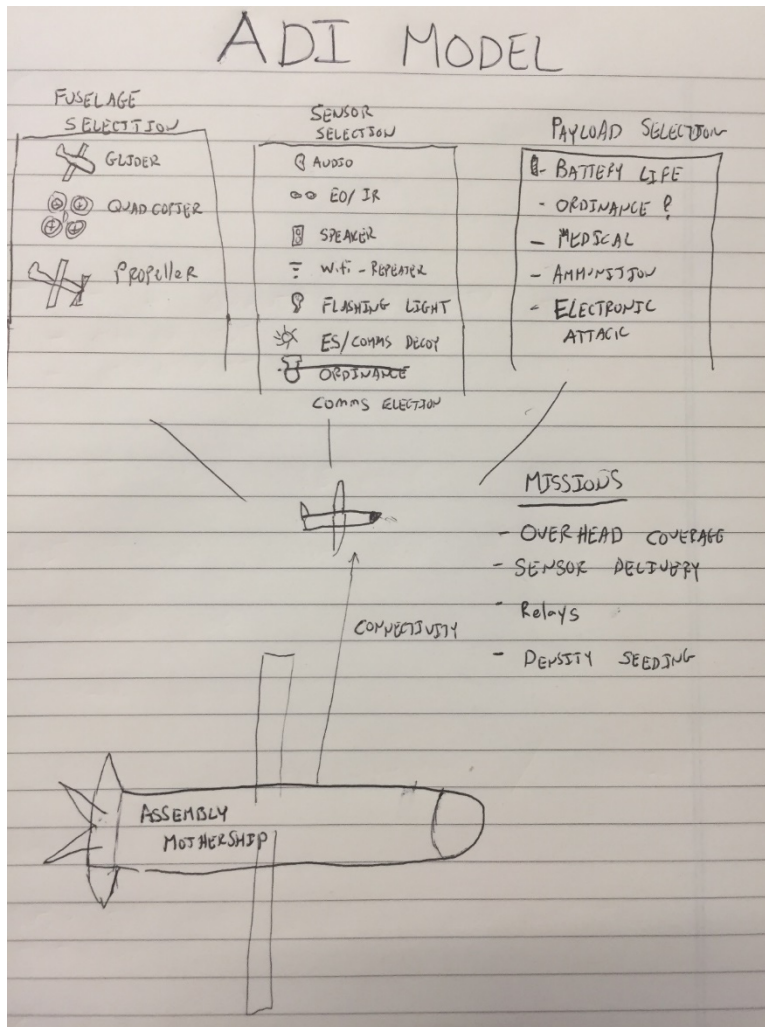 ADI MODEL
FUSELAGE
SELECTION
GLIDER
QUADCOPTER
PROPELLER
SENSOR
SELECTION
AUDIO
EO/IR
SPEAKER
Wifi - REPEATER
FLASHING LIGHT
ES/COMMS DECOY
ORDINANCE
COMMS ELECTION
PAYLOAD SELECTION
- BATTERY LIFE
- ORDINANCE ?
- MEDICAL
- AMMUNITION
- ELECTRONIC
ATTACK
MISSIONS
- OVERHEAD COVERAGE
- SENSOR DELIVERY
- Relays
- DENSITY SEEDING
CONNECTIVITY
ASSEMBLY
MOTHERSHIP